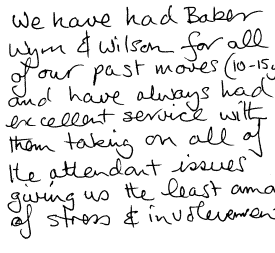 We have had Baker
Wynn & Wilson for all
of our past moves (10-15
and have always had
excellent service with
them taking on all of
the attendant issues
giving us the least amo
of stress & involvemen